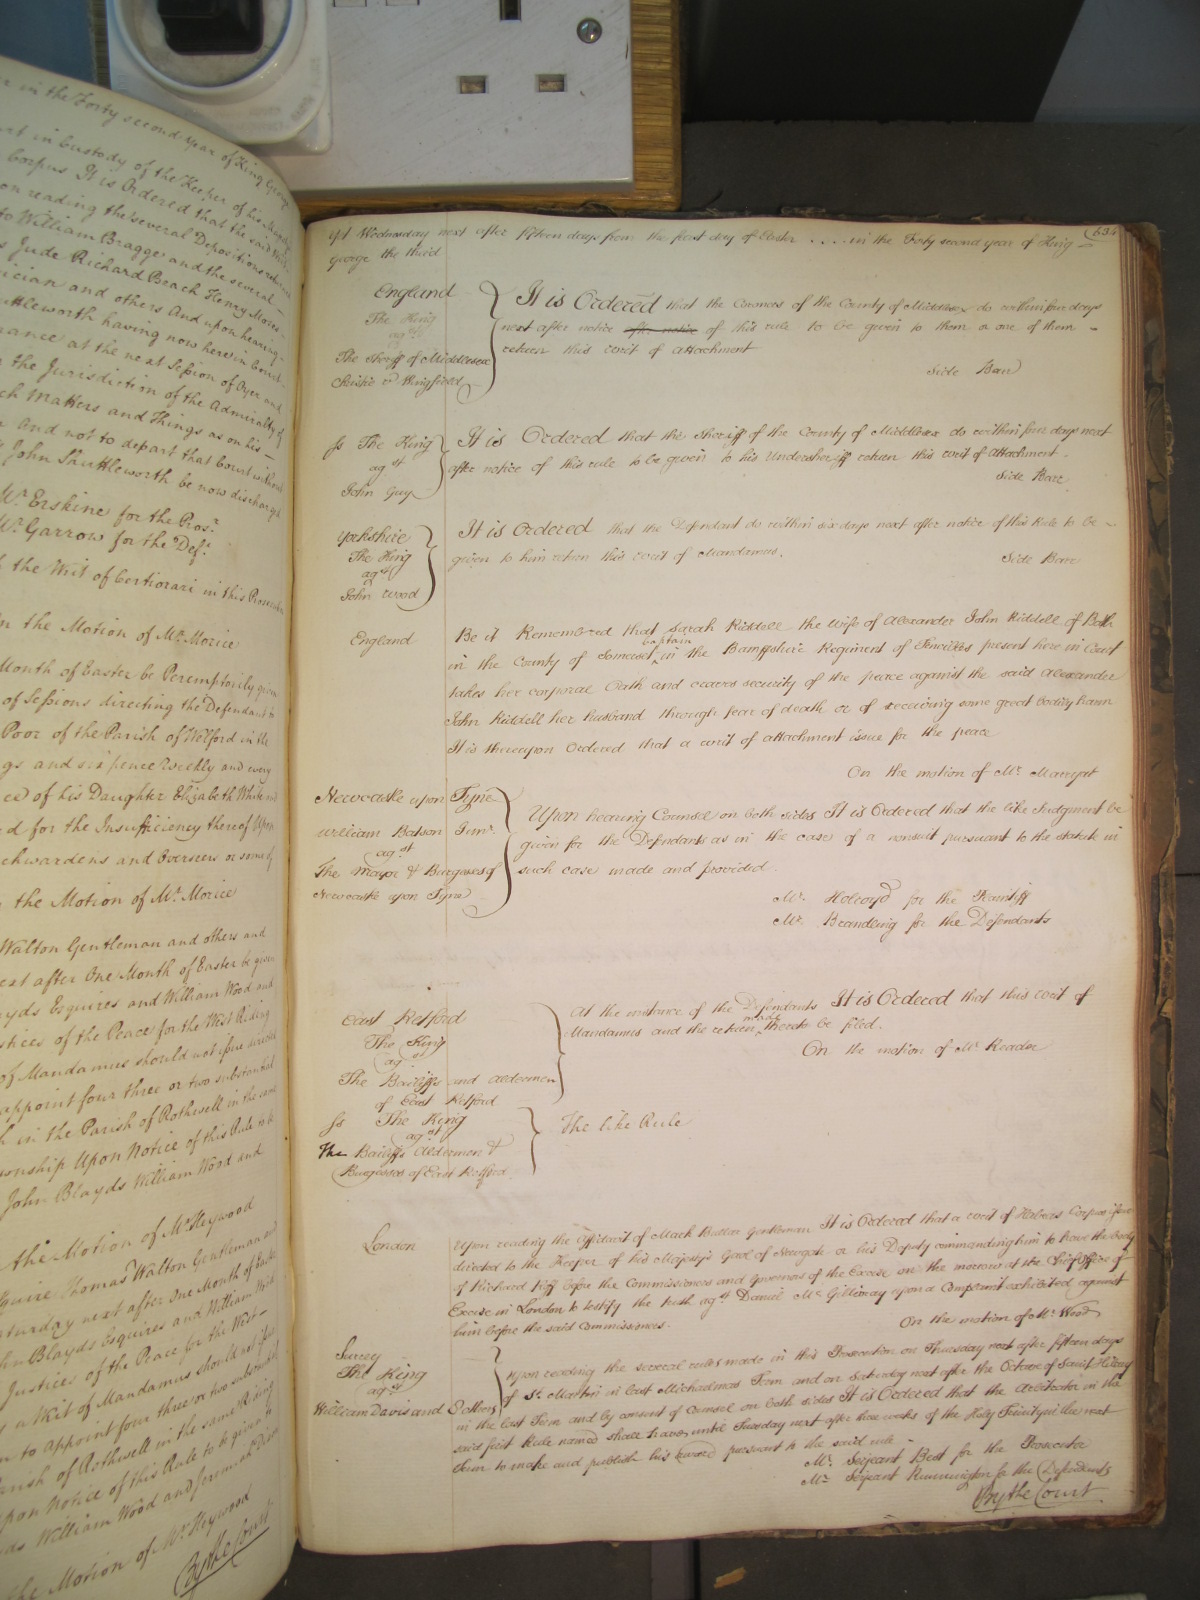 r in the Forty second year of King George
at in Custody of the Keeper of his Majesty's
Corpus It is Ordered that the said
on reading the several Depositions
to William Bragge and the several
Jude Richard Beach Henry Moses
ician and others And upon hearing
uttleworth having now here in Court
rance at the next Session of Oyer and
n the Jurisdiction of the Admiralty of
ch Matters and Things as on his
And not to depart that Court without
John Shuttleworth be now discharged
Mr. Erskine for the Prosr.
Mr. Garrow for the Deft.
the Writ of Certiorari in this Prosecution
n the Motion of Mr. Morice
Month of Easter be Peremptorily given
of Sessions directing the Defendant to
Poor of the Parish of Welford in the
gs and six pence Weekly and every
ce of his Daughter Elizabeth White
d for the Insufficiency thereof Upon
chwardens and Overseers or some of
the Motion of Mr. Morice
Walton Gentleman and others and
ext after One Month of Easter be given
yds Esquires and William Wood and
stices of the Peace for the West Riding
of Mandamus should not issue directed
appoint four three or two substantial
in the Parish of Rothwell in the same
ownship Upon Notice of this Rule to be
John Blayds William Wood and
the Motion of Mr. Heywood
quire Thomas Walton Gentleman and
aturday next after One Month of Easter
hn Blayds Esquires and William Wood
Justices of the Peace for the West
a Writ of Mandamus should not issue
n to appoint four three or two substantial
Parish of Rothwell in the same Riding
pon Notice of this Rule to be given to
ds William Wood and Jeremiah
the Motion of Mr. Heywood
By the Court
634
yet Wednesday next after fifteen days from the feast day of Easter .... in the Forty second year of King
George the third
England
The King
agst
The Sheriff of Middlesex
Leiske v Wingfield
It is Ordered that the Coroners of the County of Middlesex do within four days
next after notice after notice of this rule to be given to them or one of them
return this writ of attachment
Side Bar
Ss The King
agst
John Guy
It is Ordered that the Sheriff of the County of Middlesex do within four days next
after notice of this rule to be given to his Undersheriff return this writ of Attachment.
Side Barr
Yorkshire
The King
agst
John Wood
It is Ordered that the Defendant do within six days next after notice of this Rule to be
given to him return this writ of Mandamus.
Side Barr
England
Be it Remembered that Sarah Riddell the Wife of Alexander John Riddell of Bath
in the County of Somerset captain in the Bampshire Regiment of Fencibles present here in Court
takes her corporal Oath and craves security of the peace against the said Alexander
John Riddell her husband through fear of death or of receiving some great bodily harm
It is thereupon Ordered that a writ of attachment issue for the peace
On the motion of Mr. Marryat
Newcastle upon Tyne
William Batson Genr.
agst
The Mayor & Burgesses of
Newcastle upon Tyne
Upon hearing Counsel on both sides It is Ordered that the like Judgment be
given for the Defendants as in the case of a nonsuit pursuant to the statute in
such case made and provided.
Mr. Holroyd for the Plaintiff
Mr. Brandling for the Defendants
East Retford
The King
agst
The Bailiffs and Aldermen
of East Retford
At the instance of the Defendants It is Ordered that this writ of
Mandamus and the return made thereto be filed.
On the motion of Mr. Reader
Ss The King
agst
The Bailiffs Aldermen &
Burgesses of East Retford
The like Rule
London
Upon reading the Affidavit of Mark Button Gentleman It is Ordered that a writ of Habeas Corpus issue
directed to the Keeper of his Majesty's Gaol of Newgate or his Deputy commanding him to have the body
of Richard before the Commissioners and Governors of the Excise on the morrow at the Chief Office of
Excise in London to testify the truth agst Daniel McGilliway upon a Complaint exhibited against
him before the said Commissioners.
On the motion of Mr. Wood
Surrey
The King
agst
William Davis and 3 others
Upon reading the several rules made in this Prosecution on Thursday next after fifteen days
of St. Martin in last Michaelmas Term and on Saturday next after the Octave of Saint Hilary
in the last Term and by consent of Counsel on both sides It is Ordered that the Arbitrator in the
said first Rule named shall have until Tuesday next after three weeks of the Holy Trinity in the next
Term to make and publish his award pursuant to the said rule
Mr. Serjeant Best for the Prosecutor
Mr. Serjeant Runnington for the Defendants
By the Court